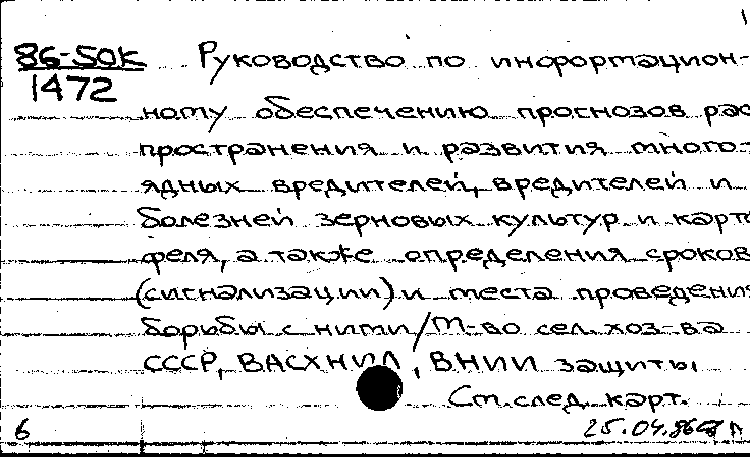 1
86-50к Руководство по информацион-
1472
ному обеспечению прогнозов рас
пространения и развития много-
ядных вредителей, вредителей и
болезней зерновых культур и карто
феля, а также определения сроков
(сигнализации) и места проведения
борьбы с ними/М-во сел. хоз-ва
СССР, ВАСХНИЛ, ВНИИ защиты
См. след. карт.
6 25.04.86